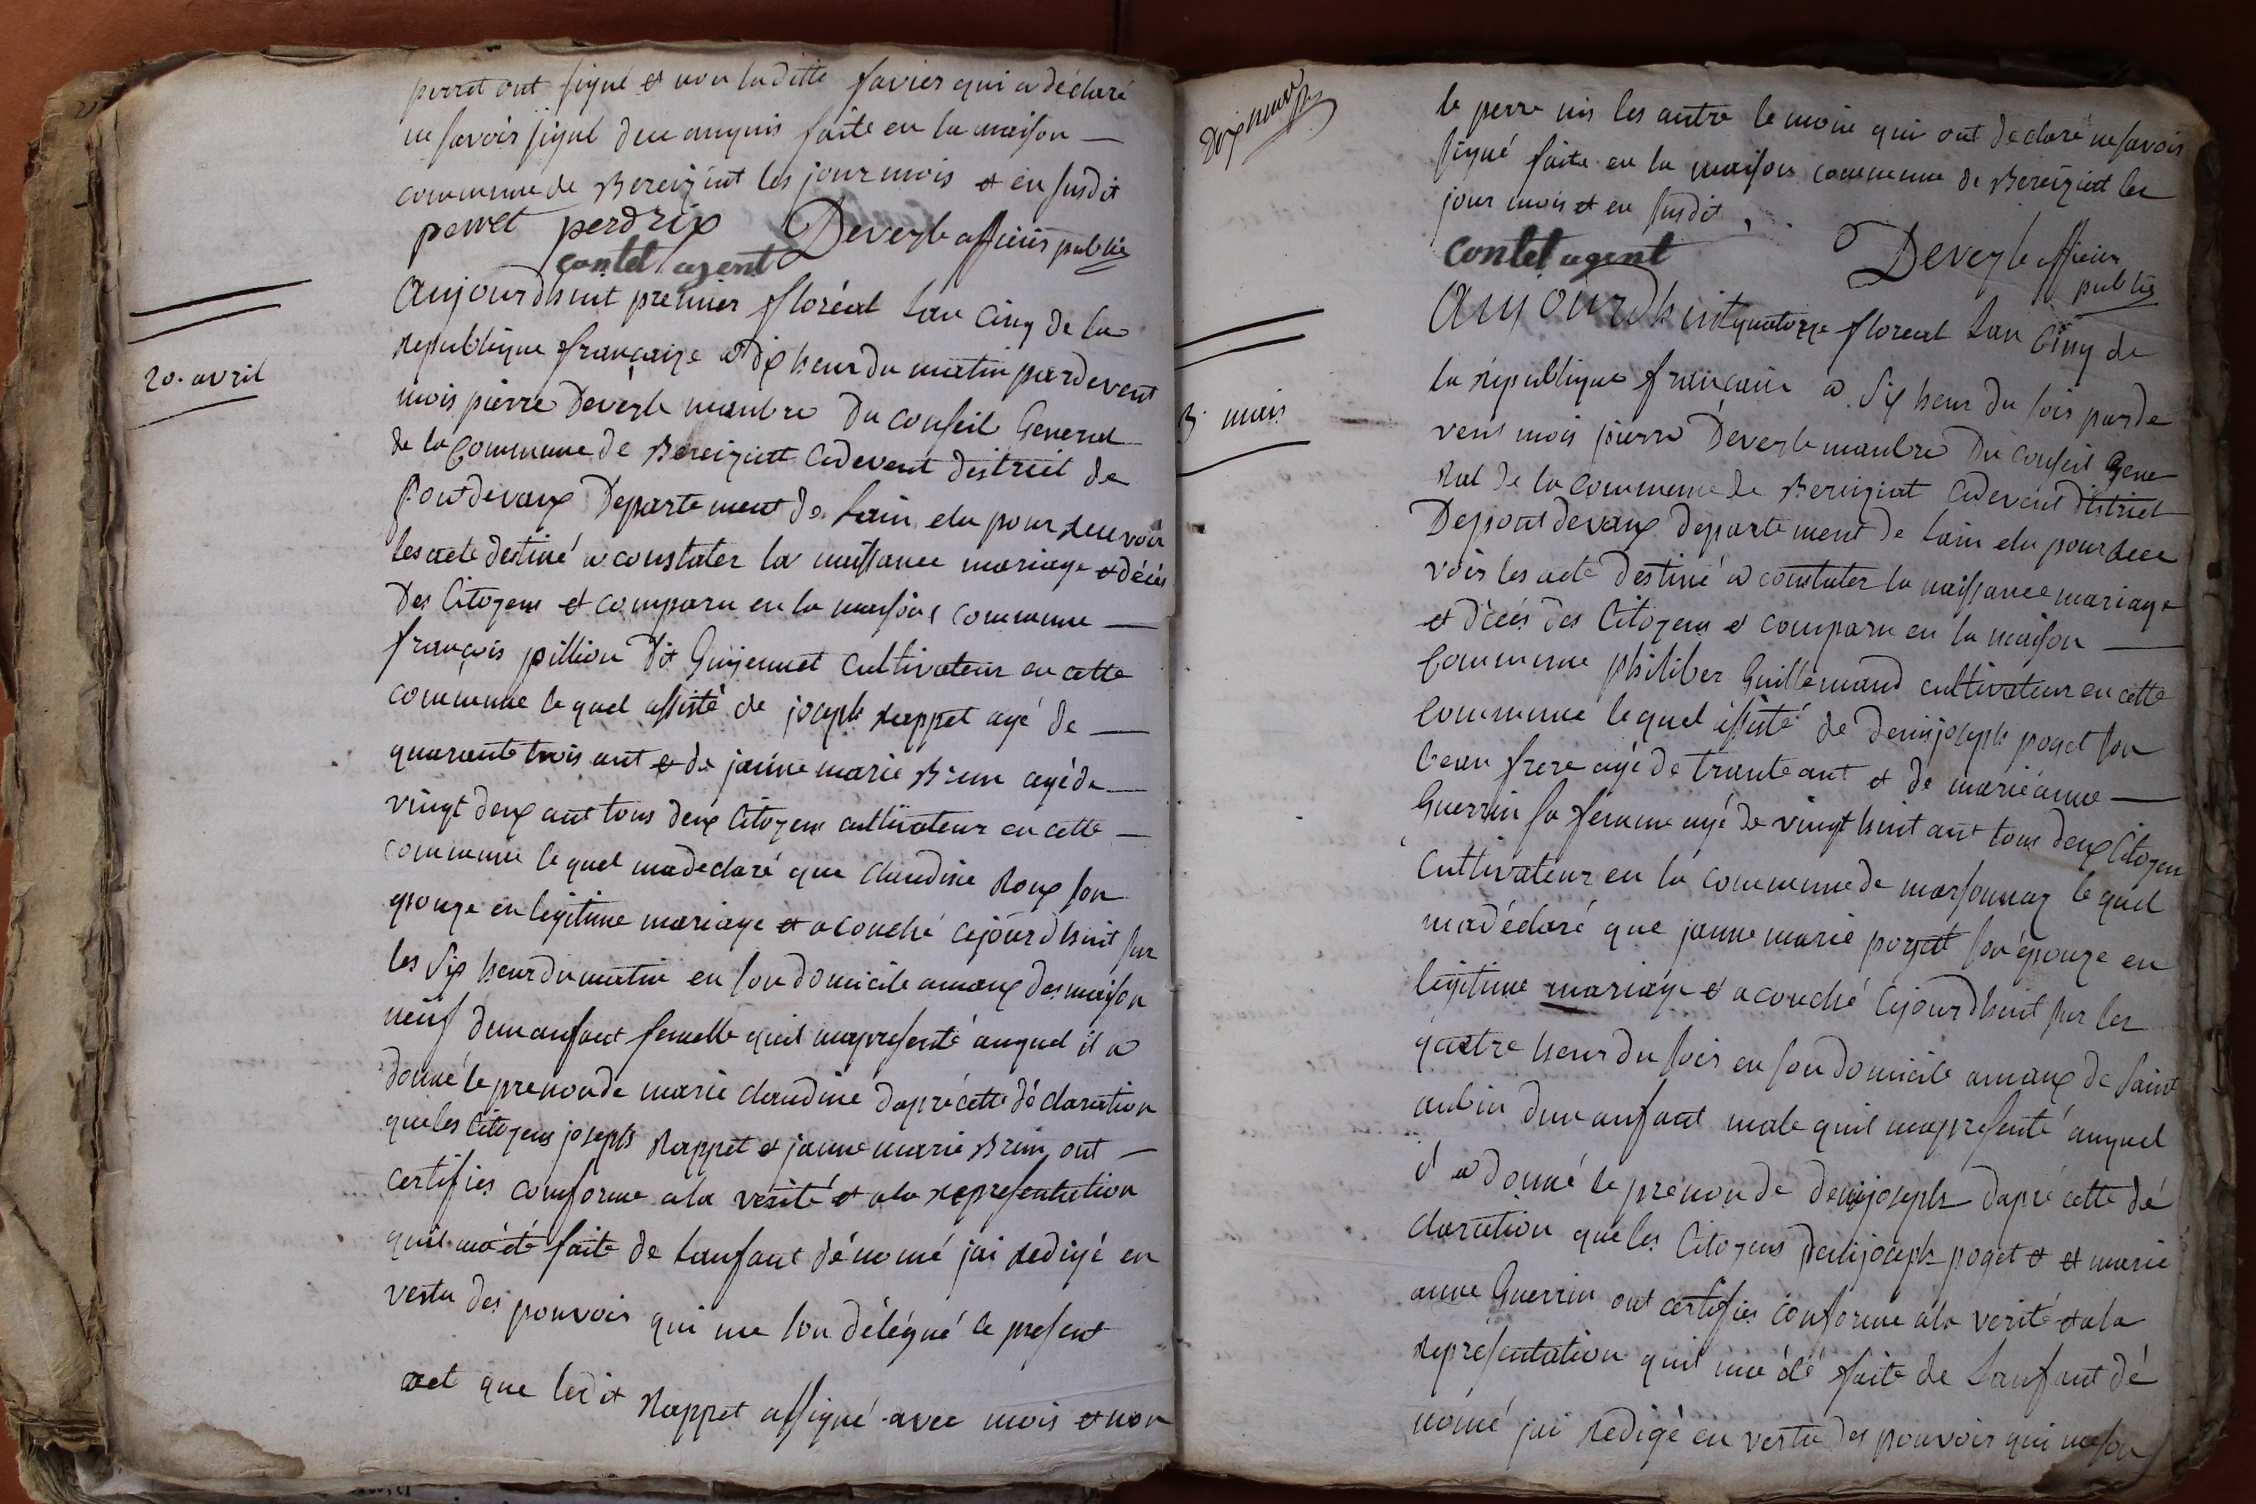 perret ont signé et non laditte favier qui a déclaré
ne savoir signé de ce enquis faite en la maison
commune de Bereiziat les jour mois et en susdit
perret perdrix Deveyle officier public
contet agent
20. avril
Aujourdhuit premier floréal Lan Cinq de la
republique françaize a dix heur du matin pardevent
mois pierre Deveyle manbre du conseil General
de la Commune de Bereiziat cidevent district de
Pontdevaux Departement de Lain elu pour recevoir
les acte destiné a constater la naissance mariage et décés
Des Citoyens et comparu en la maison commune
françois pillion dit Guyennet cultivateur en cette
commune le quel assisté de joseph rappet agé de
quarante trois ant et de janne marie Brun agé de
vingt deux ant tous deux Citoyens cultivateur en cette
commune le quel ma declaré que claudine Roux son
epouze en legitime mariage et acouché cejourdhuit sur
les six heur du matin en son domicile amaux des maison
neuf dun anfant femelle quil ma presenté auquel il a
donné le prenon de marie claudine dapré cette déclaration
que les Citoyens joseph Rappet et janne marie Brun ont
certifies comforme ala verité et ala representation
quil ma été faite de Lanfant dénomé jai redigé en
vertu des pouvoir qui me son délégué le present
act que ledit Rappet assigné avec mois et non
Dix neuf
le perre nis les autre temoin qui ont declaré ne savoir
signé faite en la maison commune de Bereiziat les
jour mois et en susdit
contet agent Deveyle officier
public
3 mais
Aujourdhuit quatorze floreal Lan Cinq de
la république françaize a six heur du soir parde
vent mois pierre Deveyle manbre du conseil Gene
ral de la commune de Bereiziat cidevent district
De pont devaux departement de Lain elu pour rece
voir les acte destiné a constater la naissance mariage
et décés des Citoyens et comparu en la maison
Commune philiber Guillemaud cultivateur en cette
commune le quel assisté de denis joseph poget son
beau frere agé de trante ant et de marie anne
Guerrin sa femme agé de vingt huit ant tous deux Citoyen
Cultivateur en la commune de marsonnaz le quel
ma déclaré que janne marie poget son épouze en
legitime mariage et acouché cejourdhuit sur les
quatre heur du soir en son domicile amaux de Saint
aubin dun anfant male quil ma presenté auquel
il a donné le prenon de denis joseph dapré cette dé
claration que les Citoyens denis joseph poget et et marie
anne Guerrin ont certifies conforme ala verité et ala
representation quil ma été faite de Lanfant dé
nomé jai redigé en vertu des pouvoir qui me son